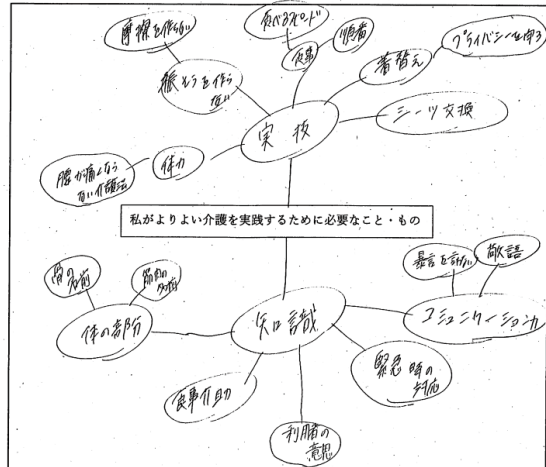 摩擦を作らない
食べるスピード
順番
食事
着替え
プライバシーを守る
褥そうを作ら
ない
実技
シーツ交換
体力
腰が痛くなら
ない介護法
私がよりよい介護を実践するために必要なこと・もの
骨の
名前
筋肉の
名前
体の部分
知識
暴言を言わない
敬語
コミュニケーション力
食事介助
緊急時の
対応
利用者の
意思